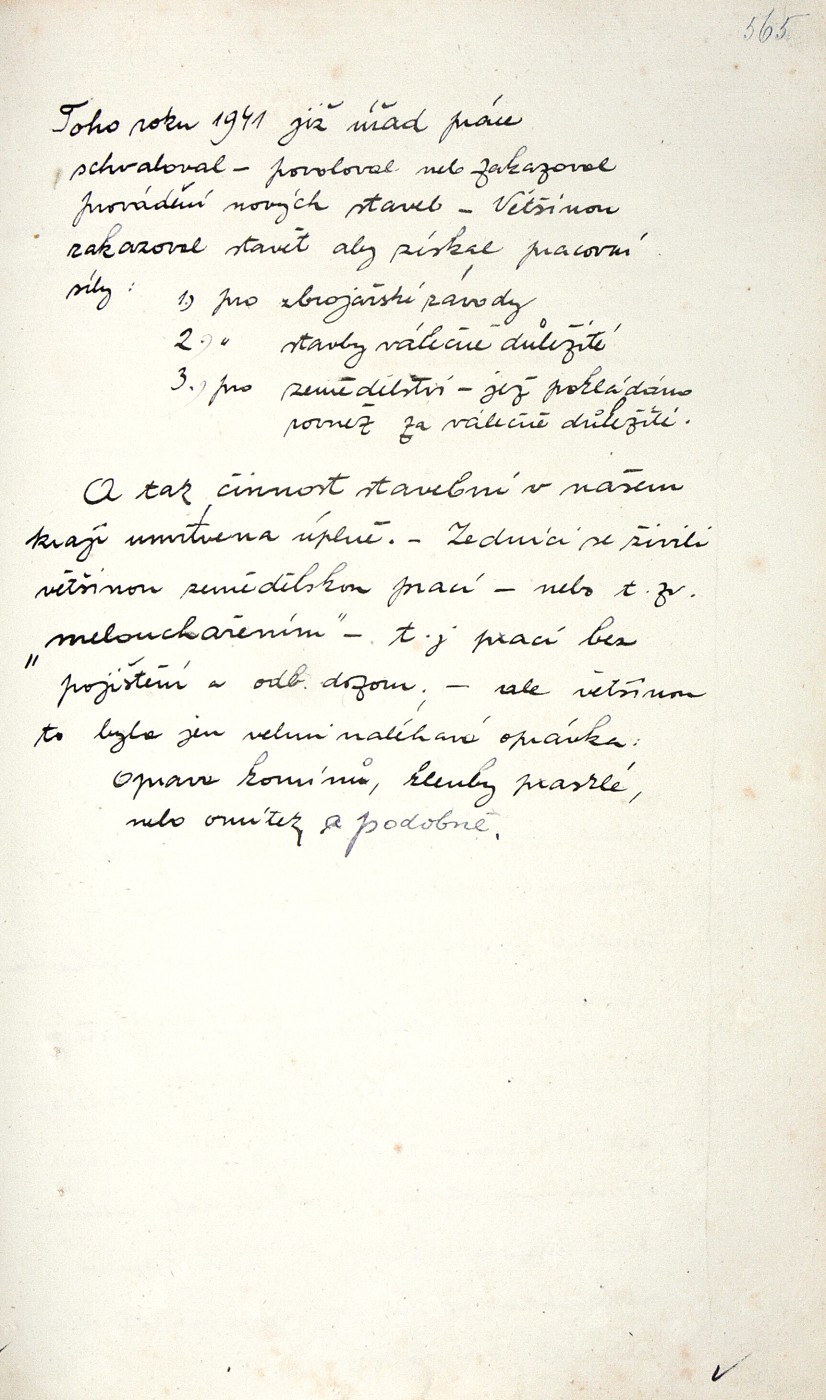 565
Toho roku 1941 již úřad práce
schvaloval – povoloval nebo zakazoval
provádění nových staveb – Většinou
zakazoval stavět aby získal pracovní
síly:
1.) pro zbrojařské závody
2.) " stavby válečně důležité
3.) pro zemědělství – jež pokládáno
rovněž za válečně důležité.
A tak činnost stavební v našem
kraji umrtvena úplně. – Zedníci se živili
většinou zemědělskou prací – nebo t. zv.
„melouchařením" – t. j prací bez
pojištění a odb. dozoru, – ale většinou
to byla jen velmi naléhavá oprávka:
Oprava komínů, klenby prasklé,
nebo omítek a podobně.